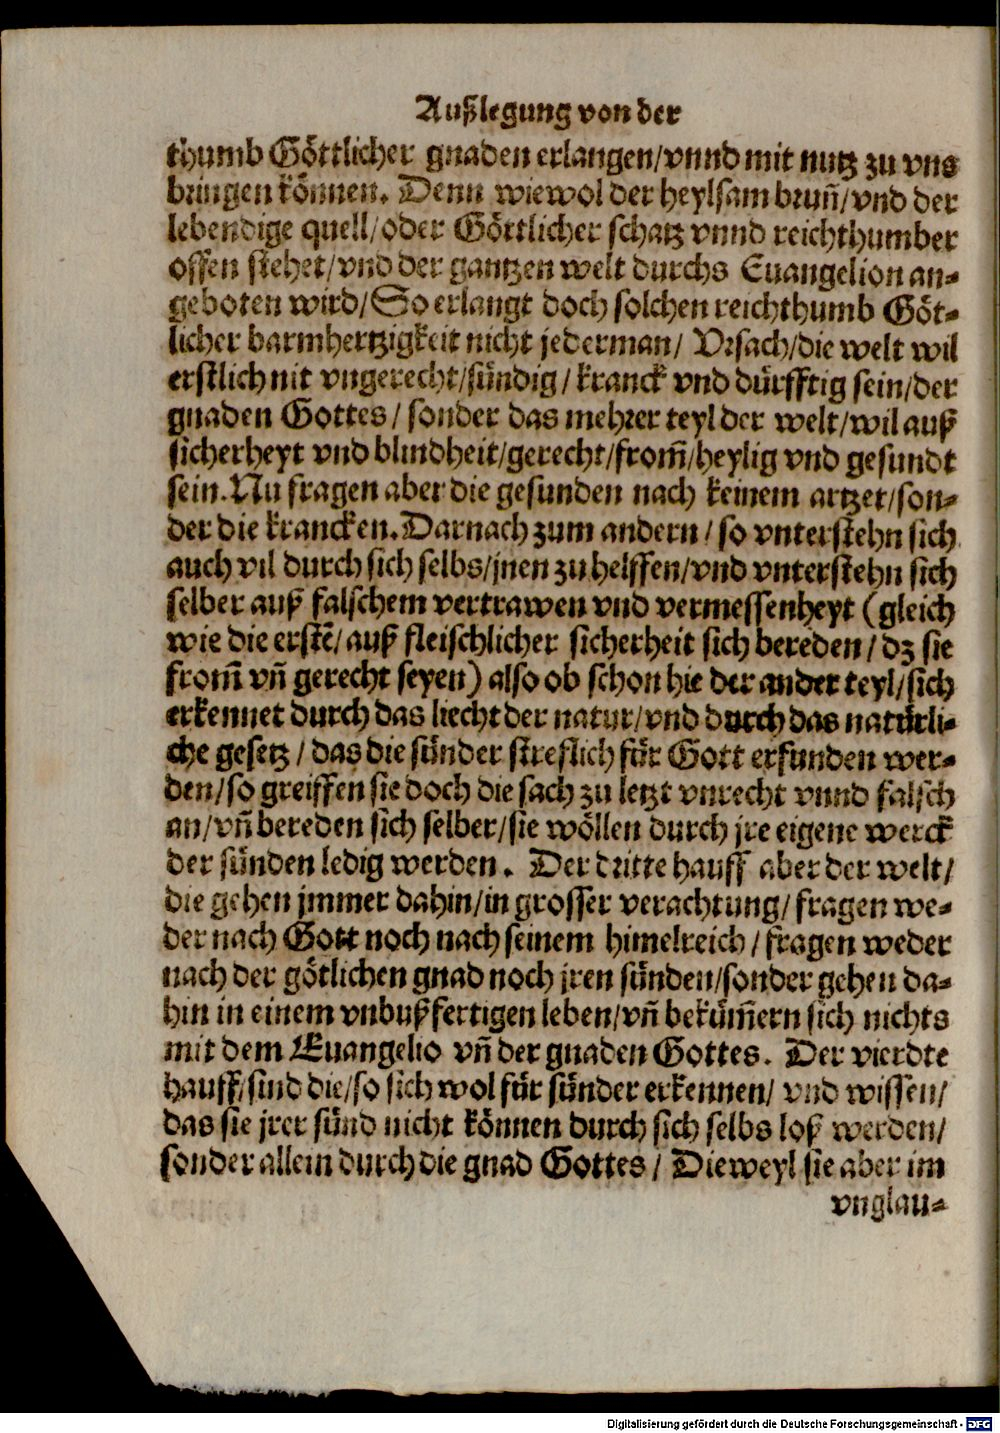 Außlegung von der
thumb Göttlicher gnaden erlangen/vnnd mit nutz zu vns
bringen können. Denn wiewol der heylsam brun̄/vnd der
lebendige quell/oder Göttlicher schatz vnnd reichthumber
offen stehet/vnd der gantzen welt durchs Euangelion an⸗
geboten wird/So erlangt doch solchen reichthumb Göt⸗
licher barmhertzigkeit nicht jederman/ Vrsach/die welt wil
erstlich nit vngerecht/sündig/kranck vnd dürfftig sein/der
gnaden Gottes/sonder das mehrer teyl der welt/wil auß
sicherheyt vnd blindheit/gerecht/from̄/heylig vnd gesundt
sein. Nu fragen aber die gesunden nach keinem artzet/son⸗
der die krancken. Darnach zum andern/so vnterstehn sich
auch vil durch sich selbs/jnen zu helffen/vnd vnterstehn sich
selber auß falschem vertrawen vnd vermessenheyt (gleich
wie die erstē/auß fleischlicher sicherheit sich bereden/dz sie
from̄ vn̄ gerecht seyen) also ob schon hie der ander teyl/sich
erkennet durch das liecht der natur/vnd durch das natürli⸗
che gesetz/das die sünder streflich für Gott erfunden wer⸗
den/so greiffen sie doch die sach zu letzt vnrecht vnnd falsch
an/vn̄ bereden sich selber/sie wöllen durch jre eigene werck
der sünden ledig werden. Der dritte hauff aber der welt/
die gehen jmmer dahin/in grosser verachtung/fragen we⸗
der nach Gott noch nach seinem himelreich/fragen weder
nach der götlichen gnad noch jren sünden/sonder gehen da⸗
hin in einem vnbußfertigen leben/vn̄ beküm̄ern sich nichts
mit dem Euangelio vn̄ der gnaden Gottes. Der vierdte
hauff/sind die/so sich wol für sünder erkennen/ vnd wissen/
das sie jrer sünd nicht können durch sich selbs loß werden/
sonder allein durch die gnad Gottes/ Dieweyl sie aber im
vnglau⸗
Digitalisierung gefördert durch die Deutsche Forschungsgemeinschaft - DFG